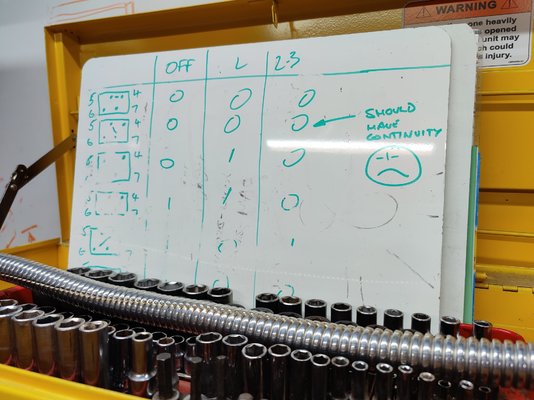 WARNING
one heavily
opened
unit may
which could
injury.
OFF L 2-3
5 4 0 0 0
6 7
5 4 0 0 0 SHOULD
6 7 HAVE
CONTINUITY
5 4 0 1 0
6 7
5 4 1 1 0
6 7
5 0 1
6 7